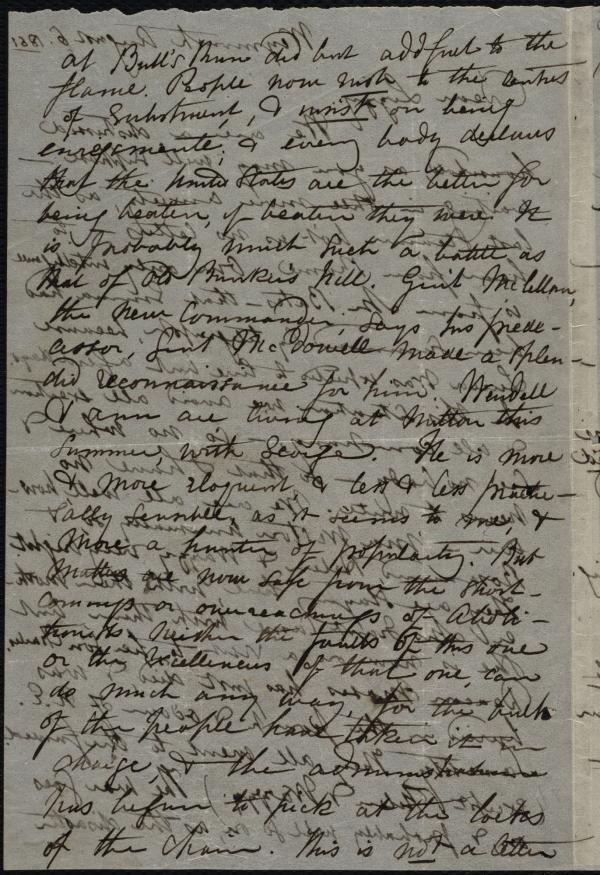 at Bull's Run did but add fuel to the
flame. People now rush to the centres
of Enlistment, & insist on being
enregimented; & every body declares
that the United States are the better for
being beaten, if beaten they were. It
is probably much such a battle as
that of Old Bunker's Hill. Gen'l McLellan,
the new Commander, says his prede-
cessor, Gen'l McDowell made a splen-
did reconnaissance for him. Wendell
& Ann are living at Milton this
Summer, with George. He is more
& more eloquent, & less & less practi-
cally sensible, as it seems to me, &
more a hunter of popularity. But
matters are now safe from the short-
comings or overreachings of Aboli-
tionists. Neither the faults of this one
or the excellencies of that one, can
do much any way, for the bulk
of the people have taken it in
charge, & the administration
has begun to pick at the locks
of the chain. This is not a letter